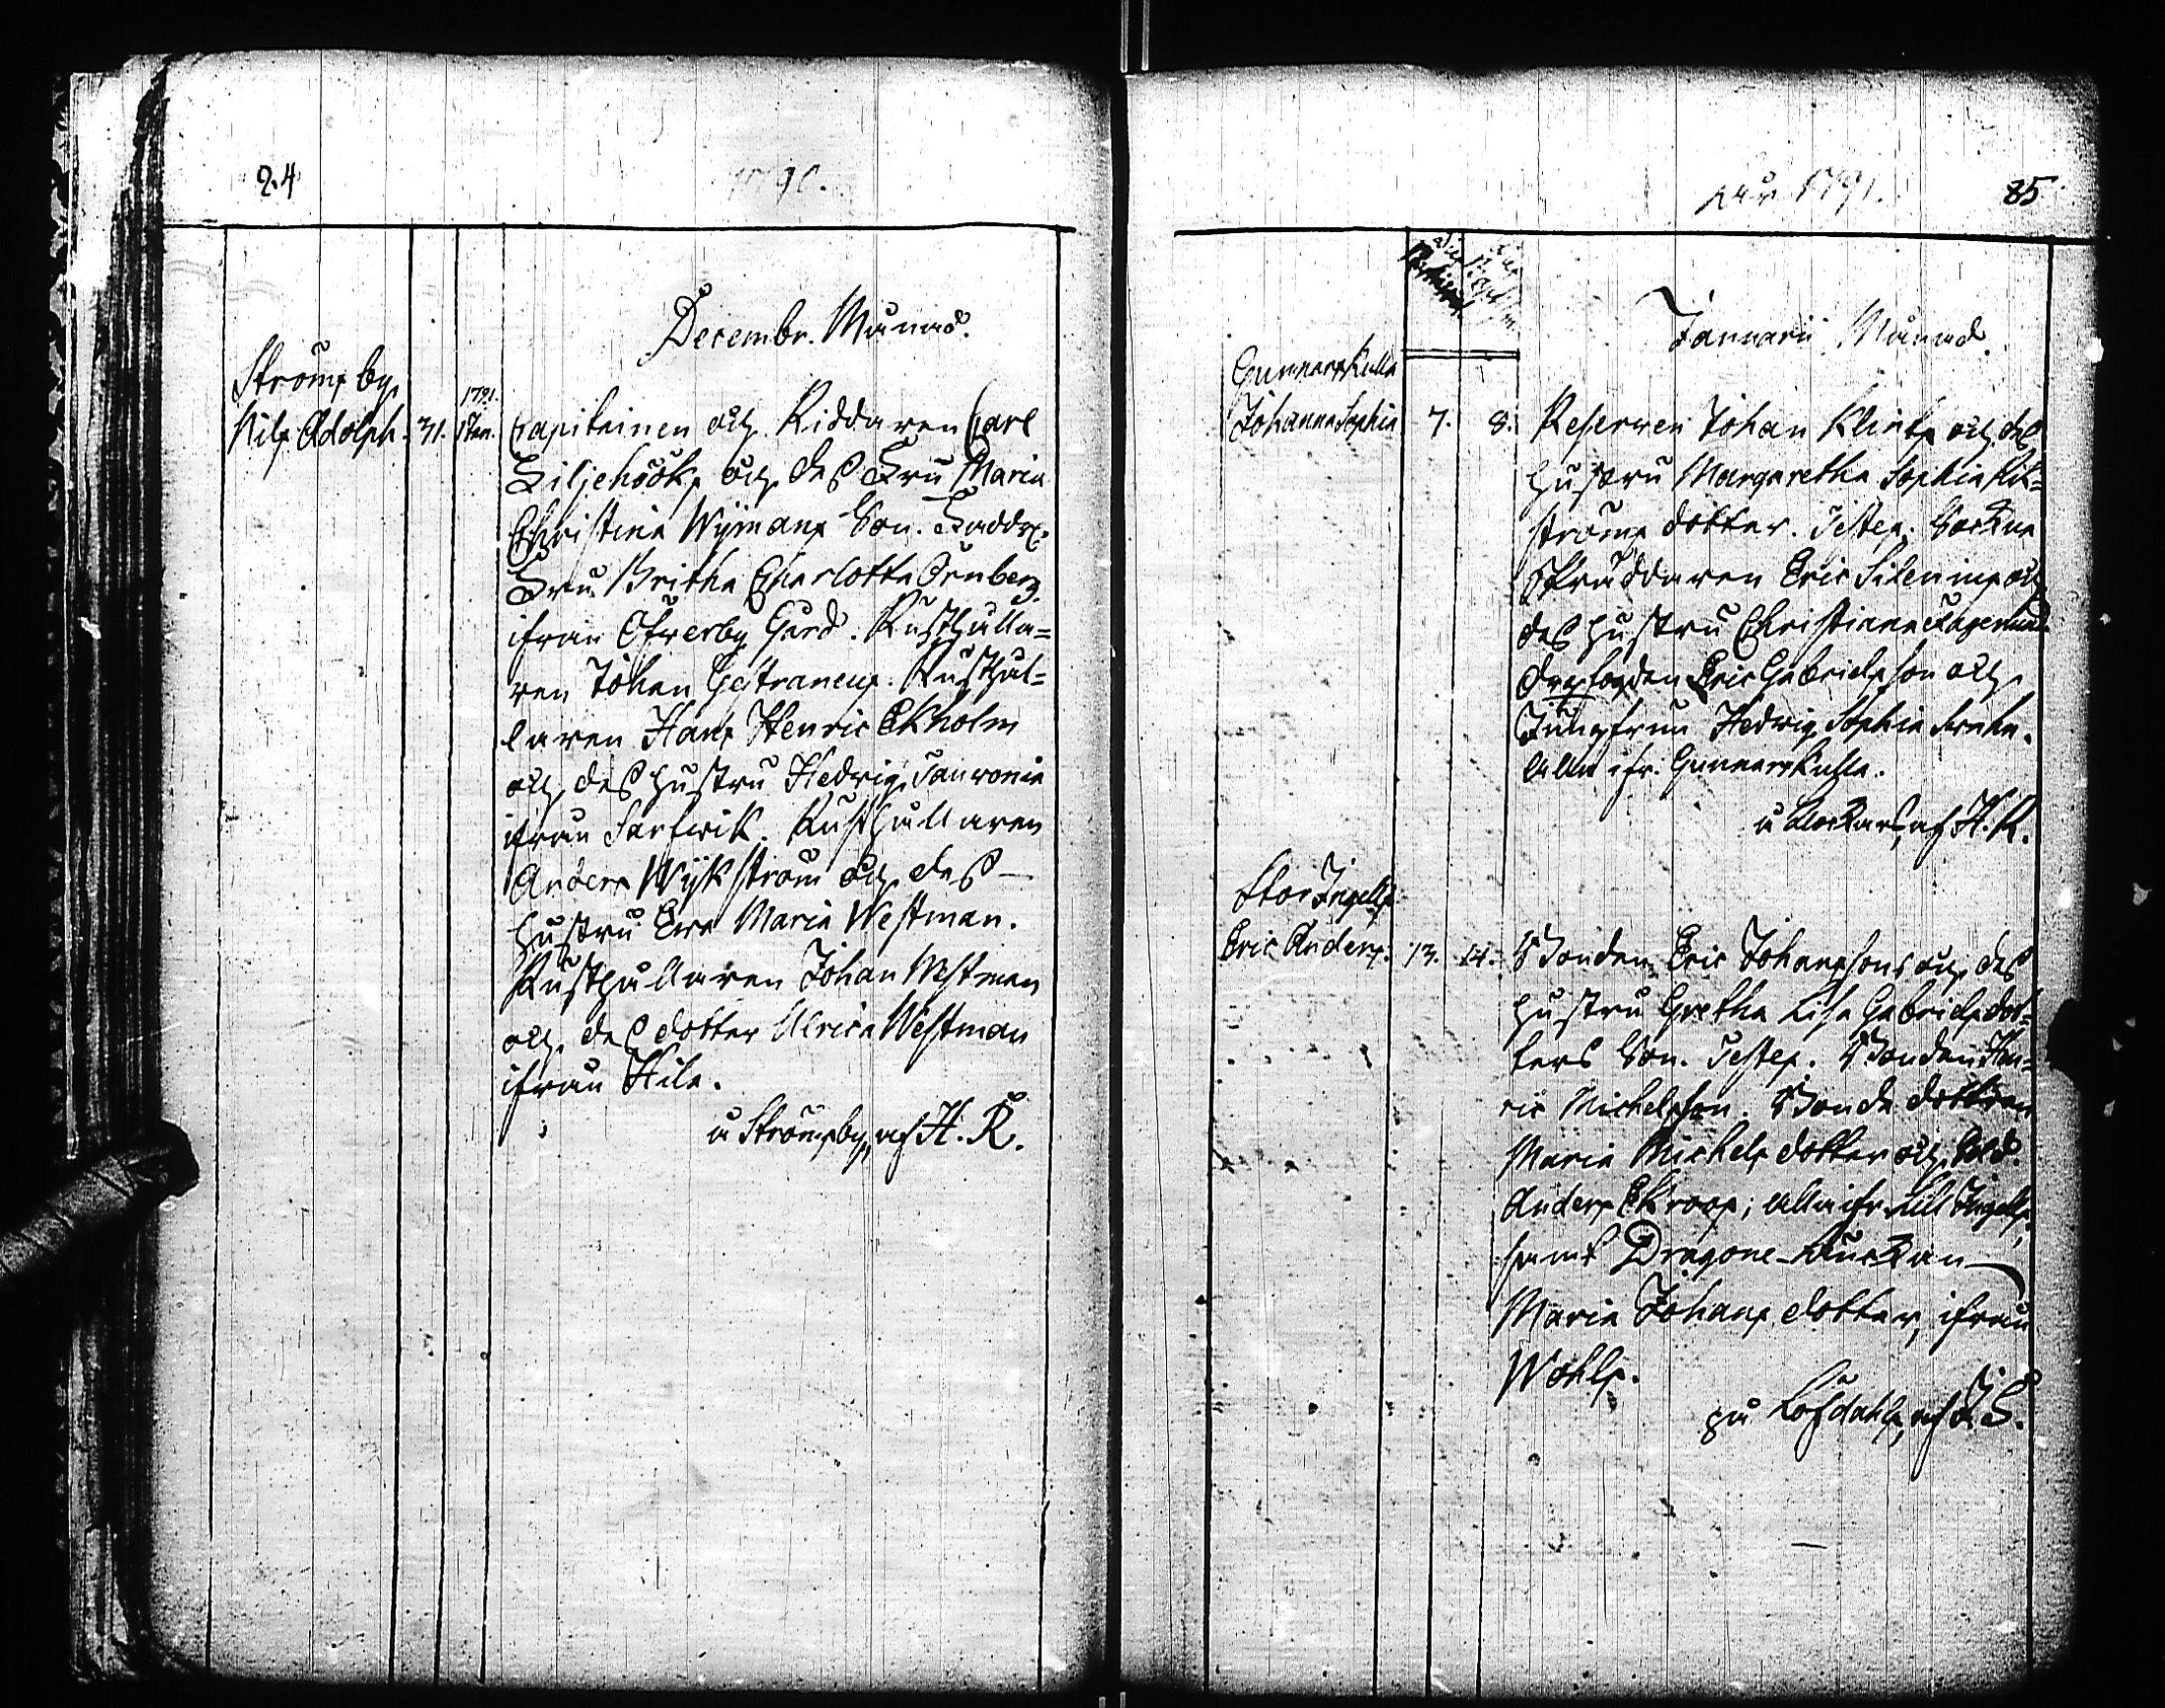 24
1790.
Decembr. Månad.
Strömsby
Nils Adolph. 31. 1791. 1 Jan. Capitainen och Riddaren Carl
Liljehöök, och des Fru Maria
Christina Wijmans Son. Fadd:
Fru Britha Charlotta Örnberg
ifrån Öfwerby Gård. Rusthålla=
ren Johan Gestraneus. Rusthål=
laren Hans Henric Ekholm
och des hustru Hedwig Sauronia
ifrån Sarfwik. Rusthållaren
Anders Wijkström och des
hustru Ewa Maria Westman.
Rusthållaren Johan Westman
och des dotter Ulrica Westman
ifrån Hila.
å Strömsby, af H. R.
år 1791.
85
Januarii Månad
Gunnarskulla
Johanna Sophia 7. 8. Reserven Johan Klint och des
hustru Margaretha Sophia
ströms dotter. Testes. Sockne
Skräddaren Eric Silenius och
des hustru Christiana Fagerlund
Eric Gabrielsson och
Jungfrun Hedwig Sophia
alla ifr: Gunnarskulla.
af H. R.
Stor Ingels
Eric Anders. 13. 14. Bonden Eric Johanssons och des
hustru Gretha Lisa Gabriels dot=
ters Son. Testes. Bonden Hen=
ric Michelsson. Bonde dottren
Maria Michels dotter och Sold.
Anders Ekroos; alla ifr. Lill Ingels,
samt Dragone-Änckan
Maria Johans dotter, ifrån
Wohls.
på Löfdahls, af J. S.